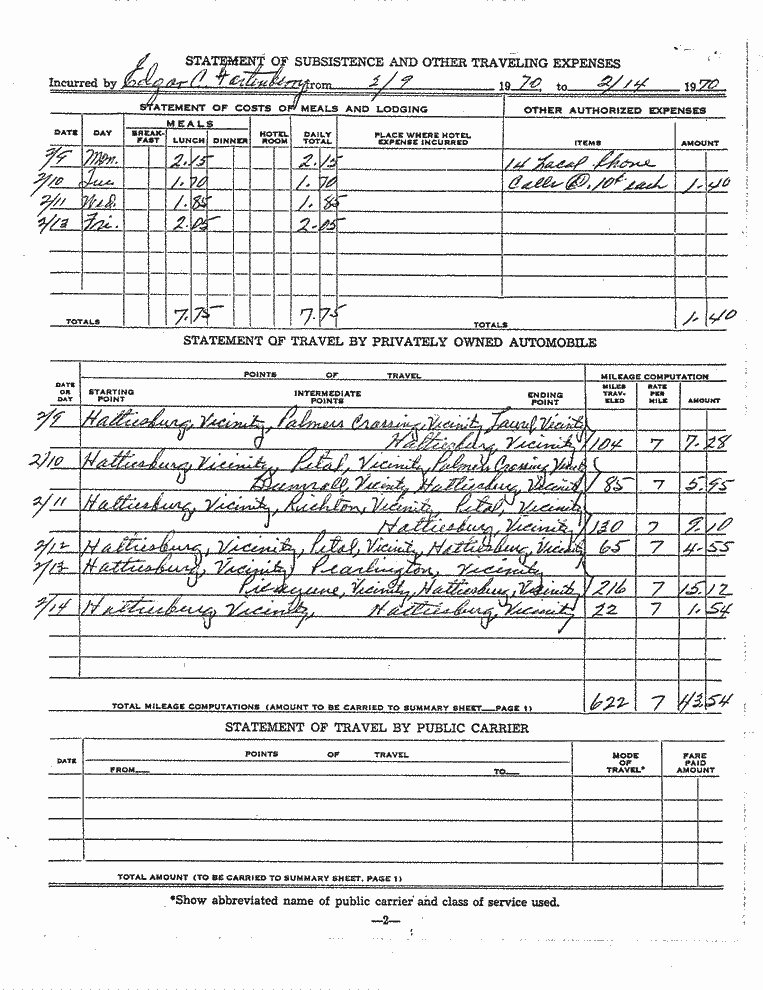 STATEMENT OF SUBSISTENCE AND OTHER TRAVELING EXPENSES
Incurred by Edgar C. from 2/9 1970, to 2/14 1970
STATEMENT OF COSTS OF MEALS AND LODGING OTHER AUTHORIZED EXPENSES
MEALS
DATE DAY BREAK-FAST LUNCH DINNER HOTEL ROOM DAILY TOTAL PLACE WHERE HOTEL EXPENSE INCURRED ITEMS AMOUNT
2/9 Mon. 2.15 2.15 14 Local Phone
2/10 Tue 1.70 1.70 Calls @ .10¢ each 1.40
2/11 Wed. 1.85 1.85
2/13 Fri. 2.05 2.05
TOTALS 7.75 7.75 TOTALS 1.40
STATEMENT OF TRAVEL BY PRIVATELY OWNED AUTOMOBILE
POINTS OF TRAVEL MILEAGE COMPUTATION
DATE OR DAY STARTING POINT INTERMEDIATE POINTS ENDING POINT MILES TRAV-ELED RATE PER MILE AMOUNT
2/9 Hattiesburg, Vicinity, Palmers Crossing, Vicinity, Laurel, Vicinity
Hattiesburg Vicinity 104 7 7.28
2/10 Hattiesburg, Vicinity, Petal, Vicinity, Palmers Crossing
Vicinity, Hattiesburg, Vicinity 85 7 5.95
2/11 Hattiesburg, Vicinity, Richton, Vicinity, Petal, Vicinity
Hattiesburg, Vicinity 130 7 9.10
2/12 Hattiesburg, Vicinity, Petal, Vicinity, Hattiesburg, Vicinity 65 7 4.55
2/13 Hattiesburg, Vicinity, Pearlington, Vicinity
Picayune, Vicinity, Hattiesburg, Vicinity 216 7 15.12
2/14 Hattiesburg Vicinity, Hattiesburg, Vicinity 22 7 1.54
TOTAL MILEAGE COMPUTATIONS (AMOUNT TO BE CARRIED TO SUMMARY SHEET—PAGE 1) 622 7 43.54
STATEMENT OF TRAVEL BY PUBLIC CARRIER
POINTS OF TRAVEL
DATE FROM— TO— MODE OF TRAVEL* FARE PAID AMOUNT
TOTAL AMOUNT (TO BE CARRIED TO SUMMARY SHEET. PAGE 1)
*Show abbreviated name of public carrier and class of service used.
—2—